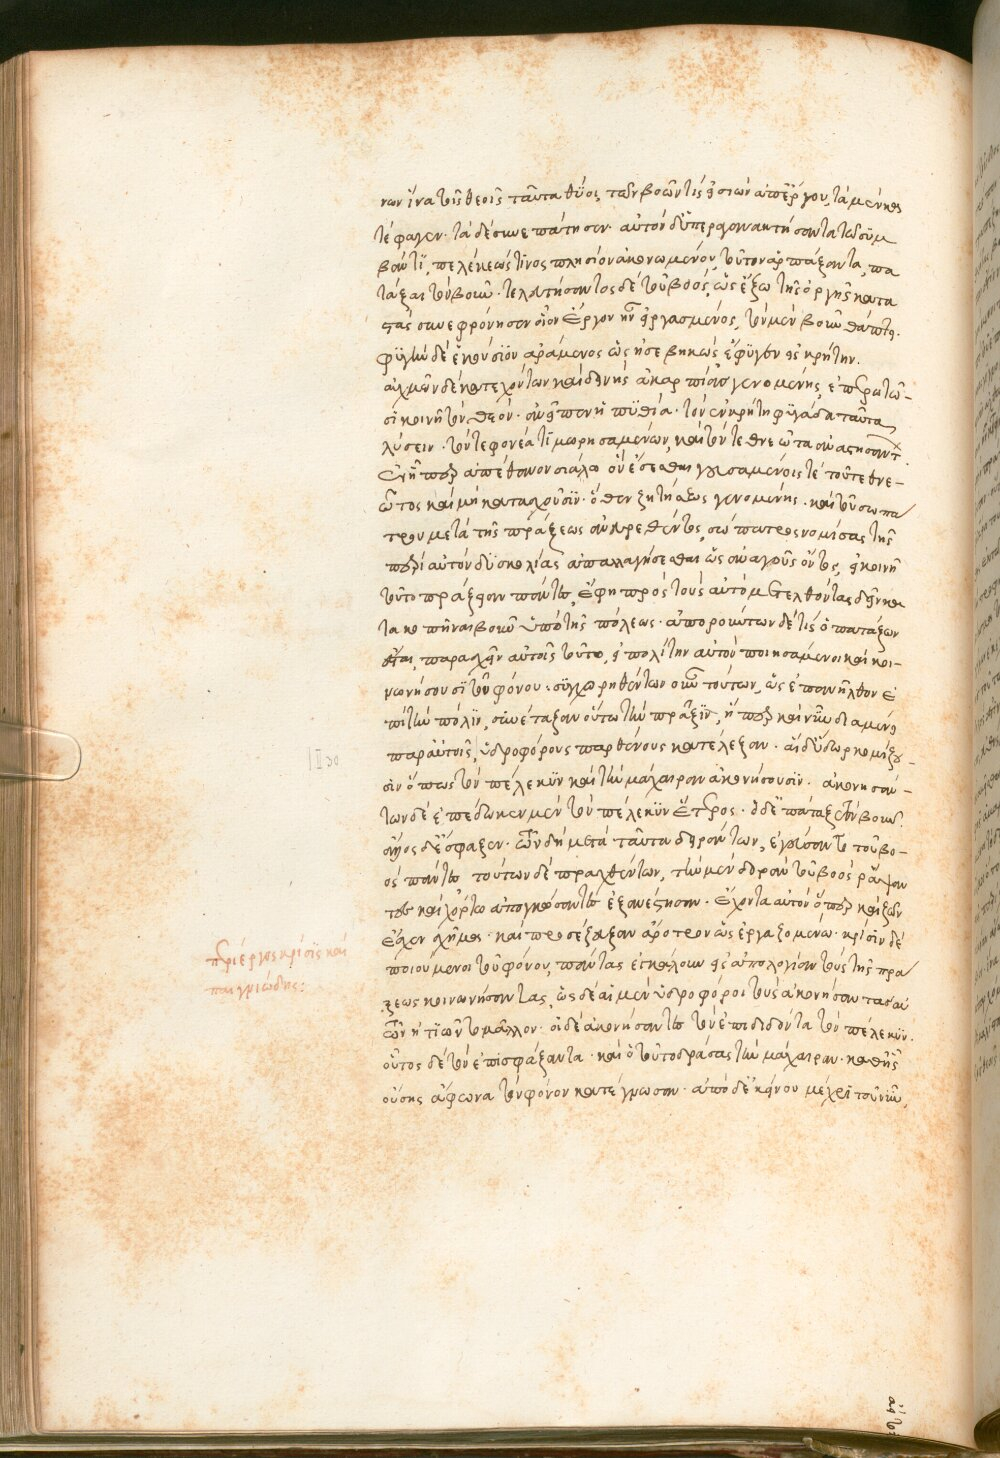 νων ἵνα τοῖς θεοῖς ταῦτα θύοι, τῶν βοῶν τίς εἰσιών ἀπ' ἔργου, τὰ μὲν κα
τέφαγεν· τὰ δὲ συνεπάτησεν· αὐτόν δ' ὑπεραγανακτήσαντα τῶ συμ
βάντι, πελέκεώς τινος πλησίον ἀκονωμένου, τοῦτον ἁρπάξαντα, πα
τάξαι τὸν βοῦν· τελευτήσαντος δὲ τοῦ βοός, ὡς ἔξω τῆς ὀργῆς κατα
στάς συνεφρόνησεν οἷον ἔργον ἦν εἰργασμένος, τὸν μὲν βοῦν θάπτει.
φυγὴν δὲ ἑκούσϊον ἀράμενος ὡς ἠσεβηκώς ἔφϋγεν εἰς κρήτην.
αὐχμῶν δὲ κατεχόντων καὶ δεινῆς ἀκαρπίας γενομένης, ἐπερωτῶ-
σι κοινῆ τὸν θεόν· ἀνεῖπεν ἡ πϋθία· τὸν ἐν κρήτη φϋγάδα ταῦτα
λύσειν· τόν τε φονέα τϊμωρησαμένων, καὶ τόν τεθνεῶτα ἀναστησάντων·
ἐν ἧπερ ἀπέθανον θυσία λῶον ἔσεσθαι γευσαμένοις τέ τοῦ τεθνε-
ῶτος καὶ μὴ κατασχοῦσϊν· ὅθεν ζητήσεως γενομένης· καὶ τοῦ σωπά
τρου μετὰ τῆς πράξεως ἀνευρεθέντος, σώπατρος νομίσας τῆς
περί αὐτόν δϋσκολίας ἀπαλλαγήσεσθαι ὡς ἐναγοῦς ὄντος, εἰ κοινῆ
τοῦτο πράξειαν πάντες, ἔφη πρός τοὺς αὐτὸν μετελθόντας δεῖν κα
τακοπῆναι βοῦν ὑπὸ τῆς πόλεως· ἀπορούντων δὲ τίς ὁ πατάξων
ἔσται, παρασχεῖν αὐτοῖς τοῦτο, εἰ πολίτην αὐτὸν ποιησάμενοι καὶ κοι-
νωνήσουσϊ τοῦ φόνου· συγχωρηθέντων οὖν τούτων, ὡς ἐπανῆλθον ἐ
πὶ τὴν πόλϊν, συνέταξαν οὕτω τὴν πρᾶξϊν, ἥπερ καὶ νῦν διαμένει
παρ' αὐτοῖς, ὑδροφόρους παρθένους κατέλεξαν· αἱ δ' ὕδωρ κομίζου-
σιν ὅπως τὸν πέλεκϋν καὶ τὴν μάχαιραν ἀκονήσουσϊν· ἀκονησάν-
των δὲ ἐπέδωκεν μὲν τὸν πέλεκϋν ἕτερος· ὁ δ' ἐπάταξε τὸν βοῦν.
ἄλλος δ' ἔσφαξεν· τῶν δὴ μετὰ ταῦτα δειράντων, ἐγεύσαντο τοῦ βο-
ός πάντες τούτων δὲ πραχθέντων, τὴν μὲν δορὰν τοῦ βοός ράψαν
τες καὶ χόρτω ἀπογκώσαντες ἐξανέστησαν· ἔχοντα αὐτόν ὅπερ καὶ ζῶν
ἔχεν σχῆμα· καὶ προσέζευξαν ἄροτρον ὡς ἐργαζομένω· κρίσιν δὲ
ποιούμενοι τοῦ φόνου, πάντας ἐκάλουν εἰς ἀπολογίαν τοὺς τῆς πρά
ξεως κοινωνήσαντας, ὡς δὲ αἱ μὲν ὑδροφόροι τοὺς ἀκονήσαντας αὐ
τῶν ἠτϊῶντο μᾶλλον· οἱ δὲ ἀκονήσαντες τὸν ἐπιδιδόντα τὸν πέλεκϋν.
οὗτος δὲ τὸν ἐπισφάξαντα· καὶ ὁ τοῦτο δράσας τὴν μάχαιραν· καθ' ἧς
οὔσης ἀφώνου τὸν φόνον κατέγνωσαν· ἀπὸ δ' ἐκείνου μέχρϊ τοῦ νῦν,
περίεργος κρίσϊς καὶ
παιγνιώδης:
II 30